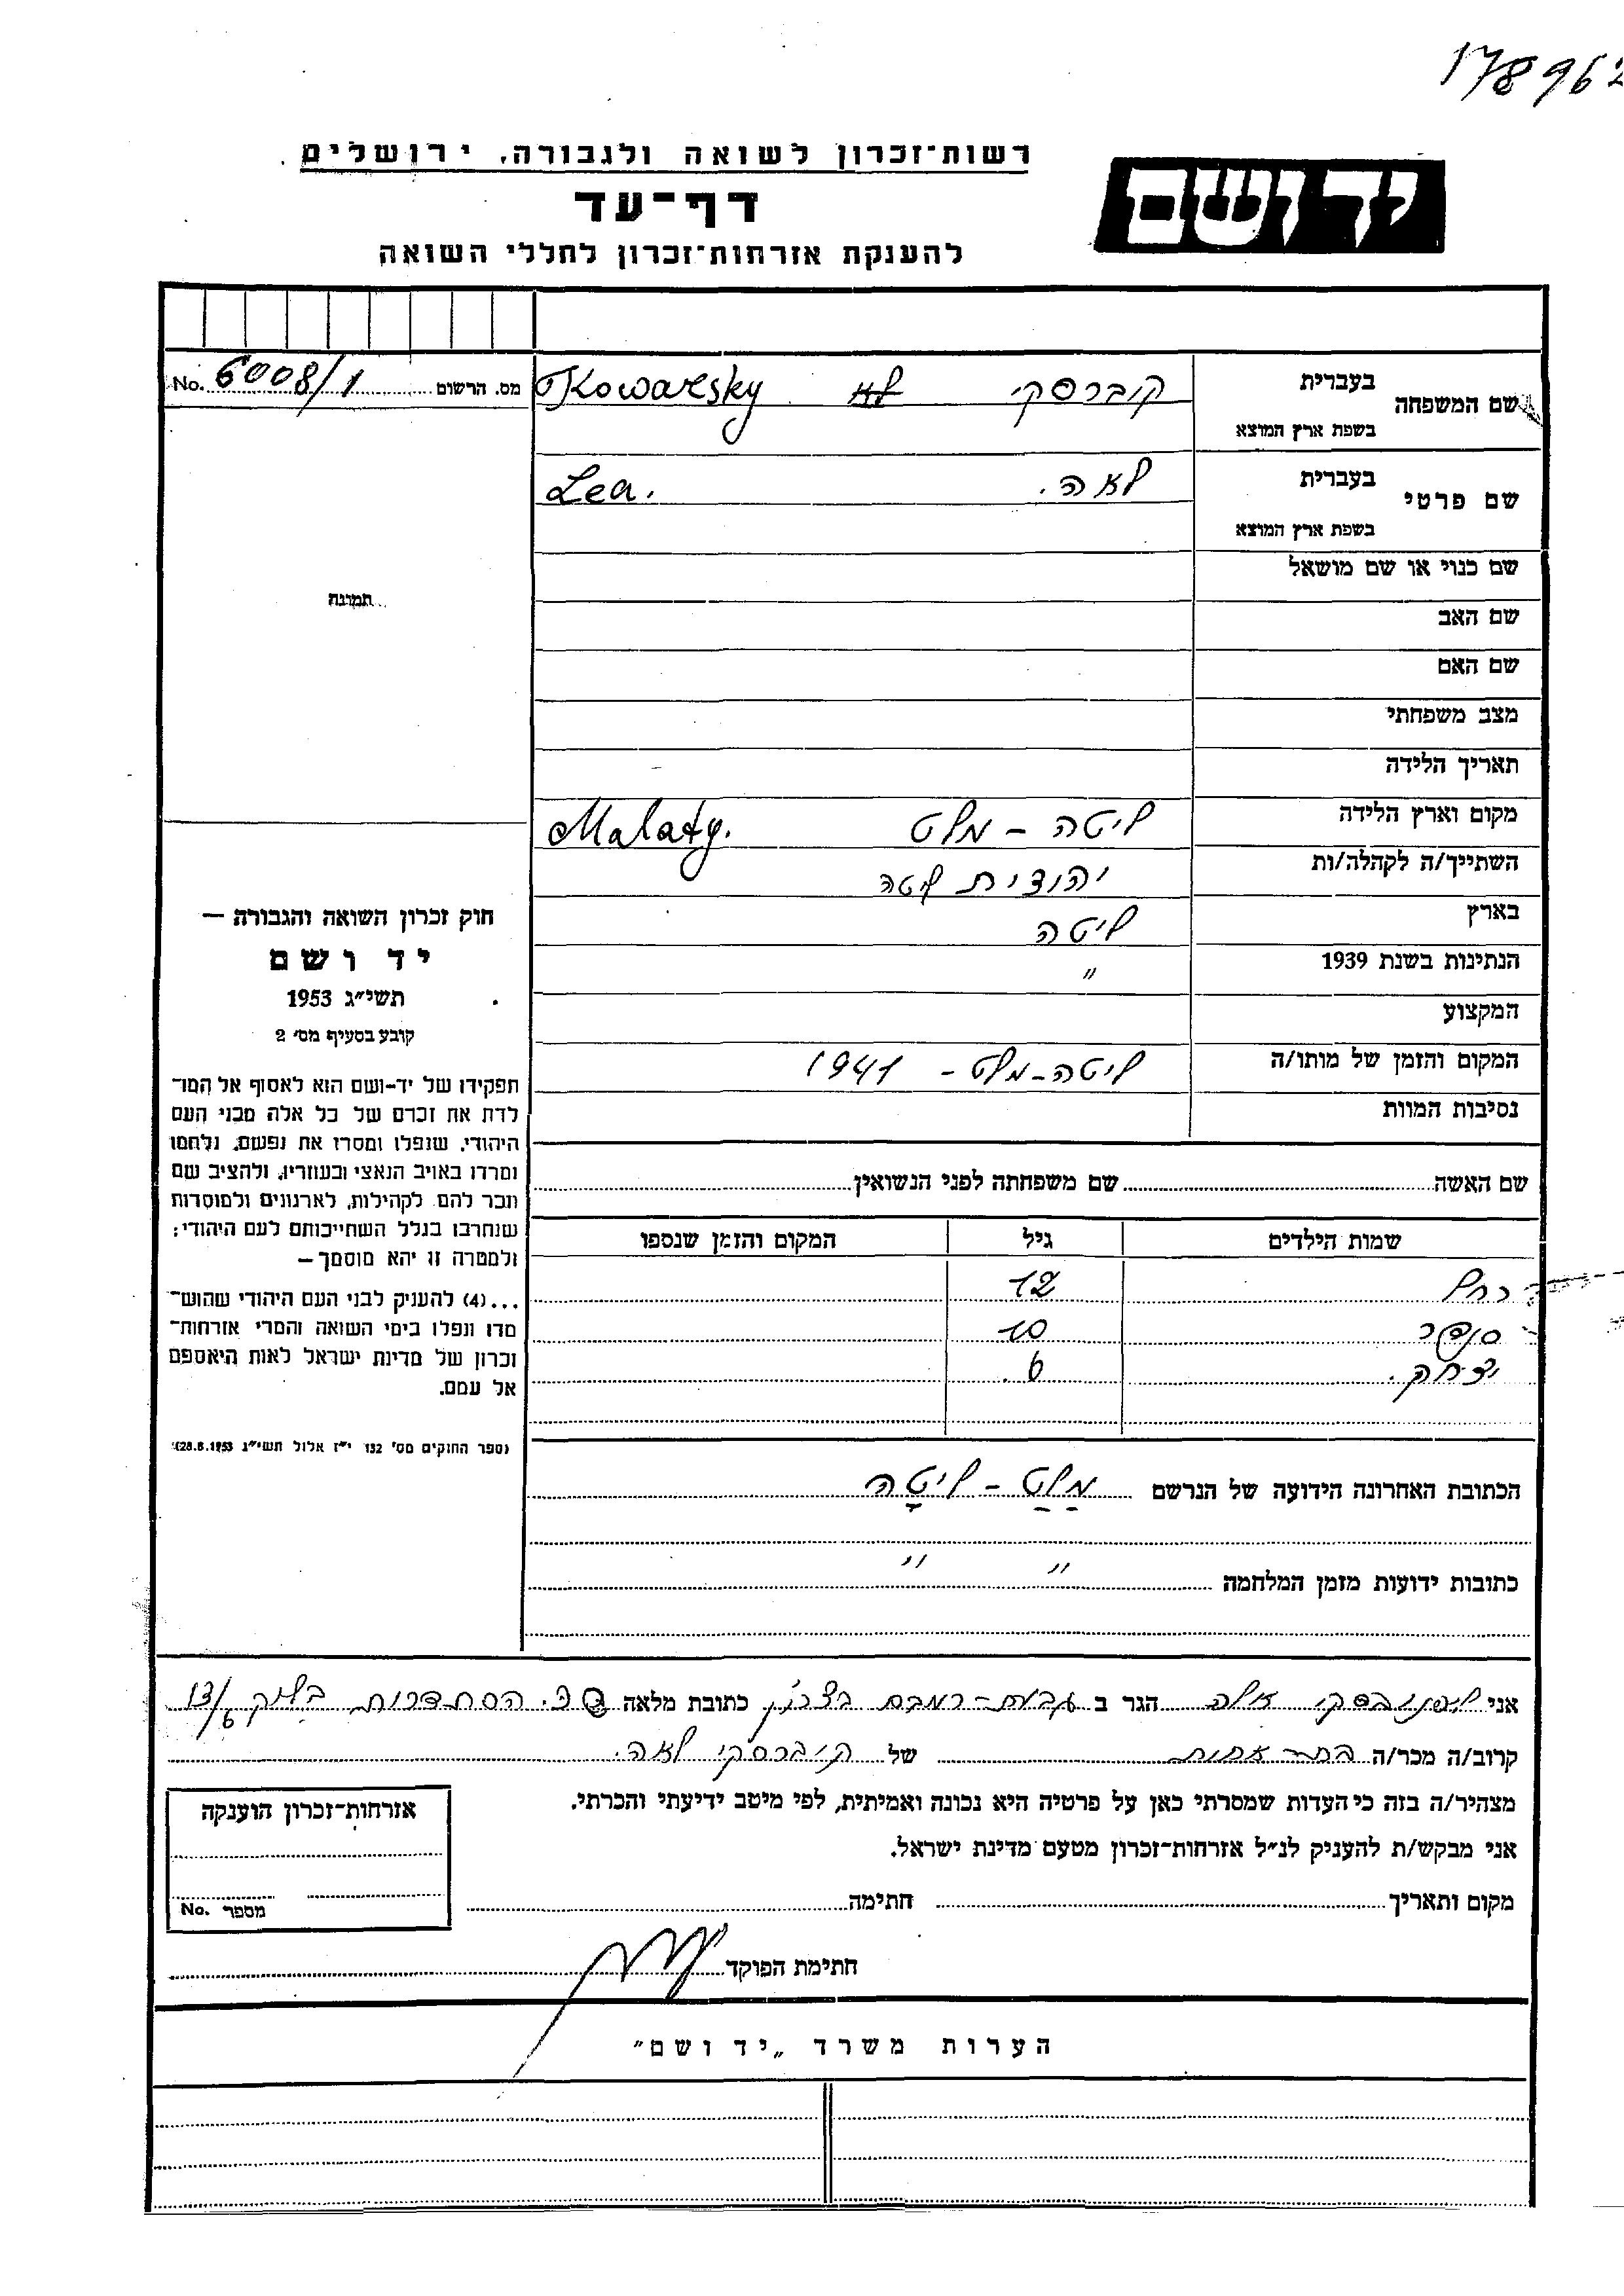 178962
רשות־זכרון לשואה ולגבורה, ירושלים
יד ושם
דף־עד
להענקת אזרחות־זכרון לחללי השואה
שם המשפחה בעברית קוברסקי Kowarsky
בשפת ארץ המוצא
מס. הרשום 6008/1 No.
שם פרטי בעברית לאה. Lea.
בשפת ארץ המוצא
שם כנוי או שם מושאל
תמונה
שם האב
שם האם
מצב משפחתי
תאריך הלידה
מקום וארץ הלידה ליטה - מלט Malaty.
השתייך/ה לקהלה/ות יהודית ליטה
בארץ ליטה
הנתינות בשנת 1939 "
המקצוע
המקום והזמן של מותו/ה ליטה - מלט - 1941
נסיבות המוות
שם האשה שם משפחתה לפני הנשואין
שמות הילדים גיל המקום והזמן שנספו
רחל 12
סנדר 10
יצחק. 6.
הכתובת האחרונה הידועה של הנרשם מלט - ליטה
כתובות ידועות מזמן המלחמה " "
חוק זכרון השואה והגבורה —
יד ושם
תשי״ג 1953
קובע בסעיף מס׳ 2
תפקידו של יד-ושם הוא לאסוף אל המו־
לדת את זכרם של כל אלה מבני העם
היהודי, שנפלו ומסרו את נפשם, נלחמו
ומרדו באויב הנאצי ובעוזריו, ולהציב שם
וזכר להם לקהילות, לארגונים ולמוסדות
שנחרבו בגלל השתייכותם לעם היהודי;
ולמטרה זו יהא מוסמך —
...(4) להעניק לבני העם היהודי שהוש־
מדו ונפלו בימי השואה והמרי אזרחות־
זכרון של מדינת ישראל לאות היאספם
אל עמם.
(ספר החוקים מס׳ 132 י״ז אלול תשי״ג 28.8.1953)
אני הגר ב כתובת מלאה הסתדרות בלוק 13/6
קרוב/ה מכר/ה בת אחות של קוברסקי לאה.
מצהיר/ה בזה כי העדות שמסרתי כאן על פרטיה היא נכונה ואמיתית, לפי מיטב ידיעתי והכרתי.
אני מבקש/ת להעניק לנ״ל אזרחות־זכרון מטעם מדינת ישראל.
מקום ותאריך חתימה
אזרחות־זכרון הוענקה
מספר No.
חתימת הפוקד
הערות משרד „יד ושם״